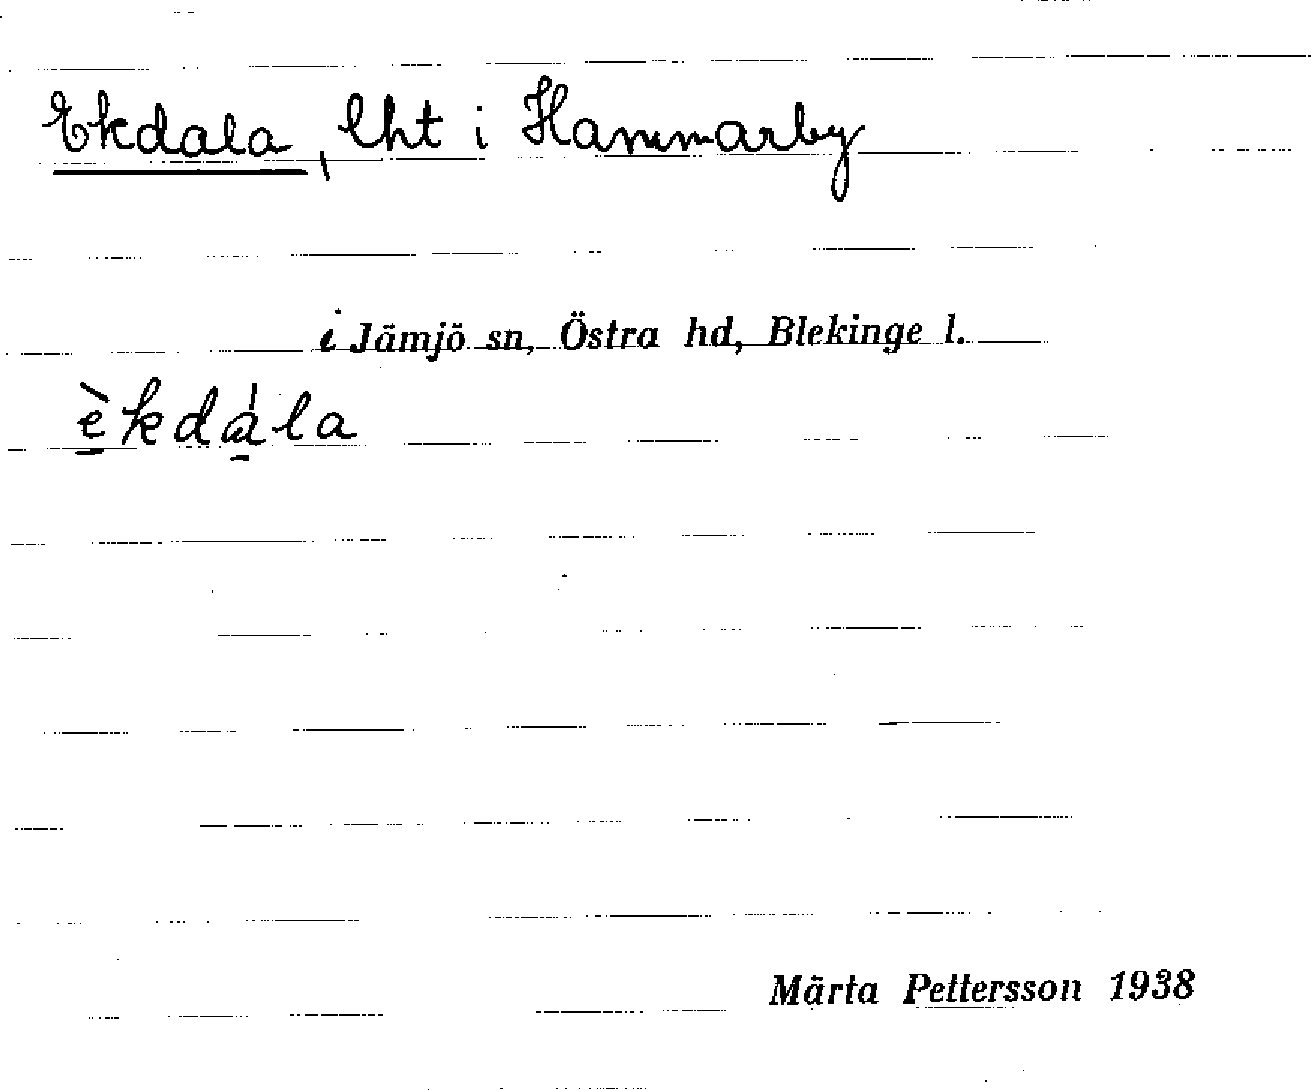 Ekdala, lht i Hammarby
i Jämjö sn, Östra hd, Blekinge l.
è̱kdá̱la
Märta Pettersson 1938